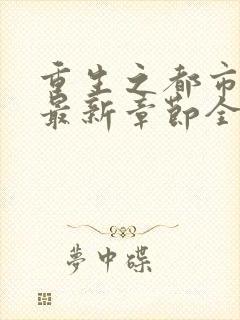 重生之都市
最新章節全
夢中碟